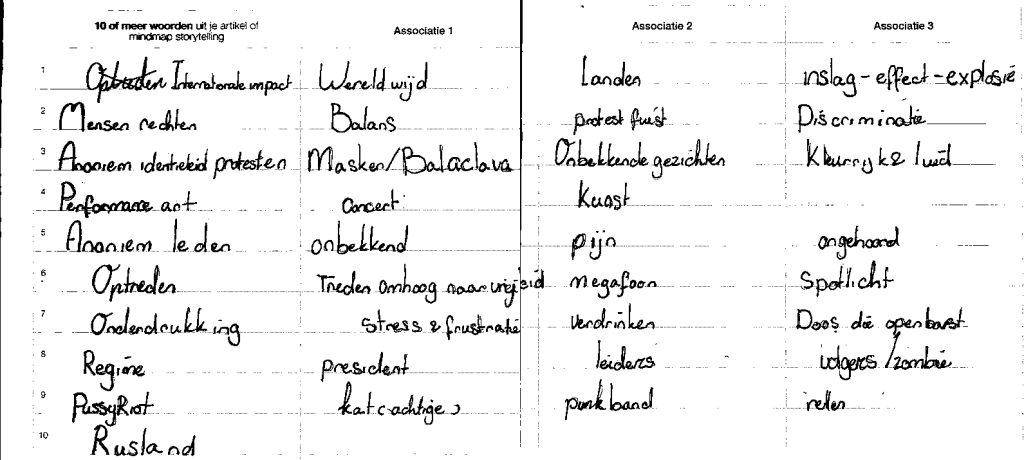 10 of meer woorden uit je artikel of Associatie 1 Associatie 2 Associatie 3
mindmap storytelling
1 Optreden Internationale impact Wereld wijd Landen inslag - effect - explosie
2 Mensen rechten Balans protest fuist Discriminatie
3 Anoniem identiteid protesten Masker/Balaclava Onbekkende gezichten Kleurryk & luid
4 Performance art Concert Kunst
5 Anoniem leden onbekkend pijn ongehoord
6 Optreden Treden omhoog naar vrijheid megafoon Spotlicht
7 Onderdrukking stress & frustratie verdrinken Doos die openbarst
8 Regime president leiders volgers / zombie
9 PussyRiot kat(achtige) punkband rellen
10 Rusland